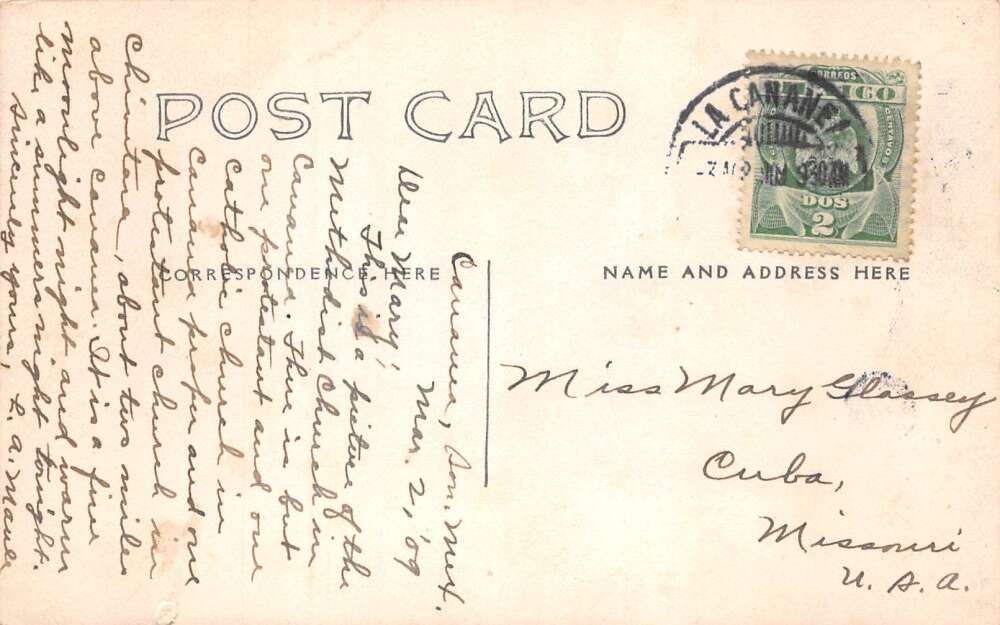 POST CARD
CORRESPONDENCE HERE
NAME AND ADDRESS HERE
CORREOS
CENTAVOS
DOS
2
LA CANANEA
Cananea, Son. Mex.
Mar. 2, '09
Dear Mary;
This is a picture of the
Methodist Church in
Cananea. There is but
one protestant and one
Catholic church in
Cananea proper and one
protestant church in
Chivitera, about two miles
above Cananea. It is a fine
moonlight night and warm
like a summers night tonight.
Sincerely yours, L. A. Maule
Miss Mary Glassey
Cuba,
Missouri
U. S. A.